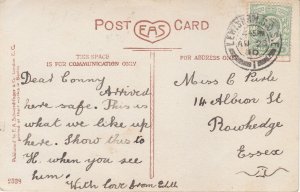 POST CARD
EAS
THIS SPACE
IS FOR COMMUNICATION ONLY
FOR ADDRESS ON
Dear Conny
Arrived
here safe. This is
what we like up
here. Show this to
H. when you see
him.
With love from Edll
Miss C
14 Albion St
Rowhedge
Essex